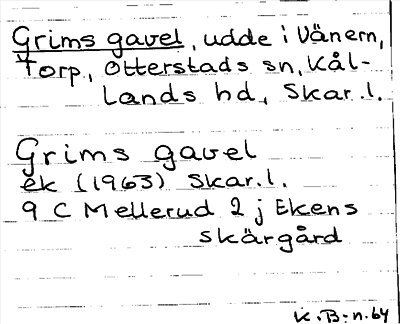 Grims gavel, udde i Vänern,
Torp, Otterstads sn, Kål-
lands hd, Skar.l.
Grims gavel
ek (1963) Skar.l.
9 C Mellerud 2 j Ekens
skärgård
K.B:n.64